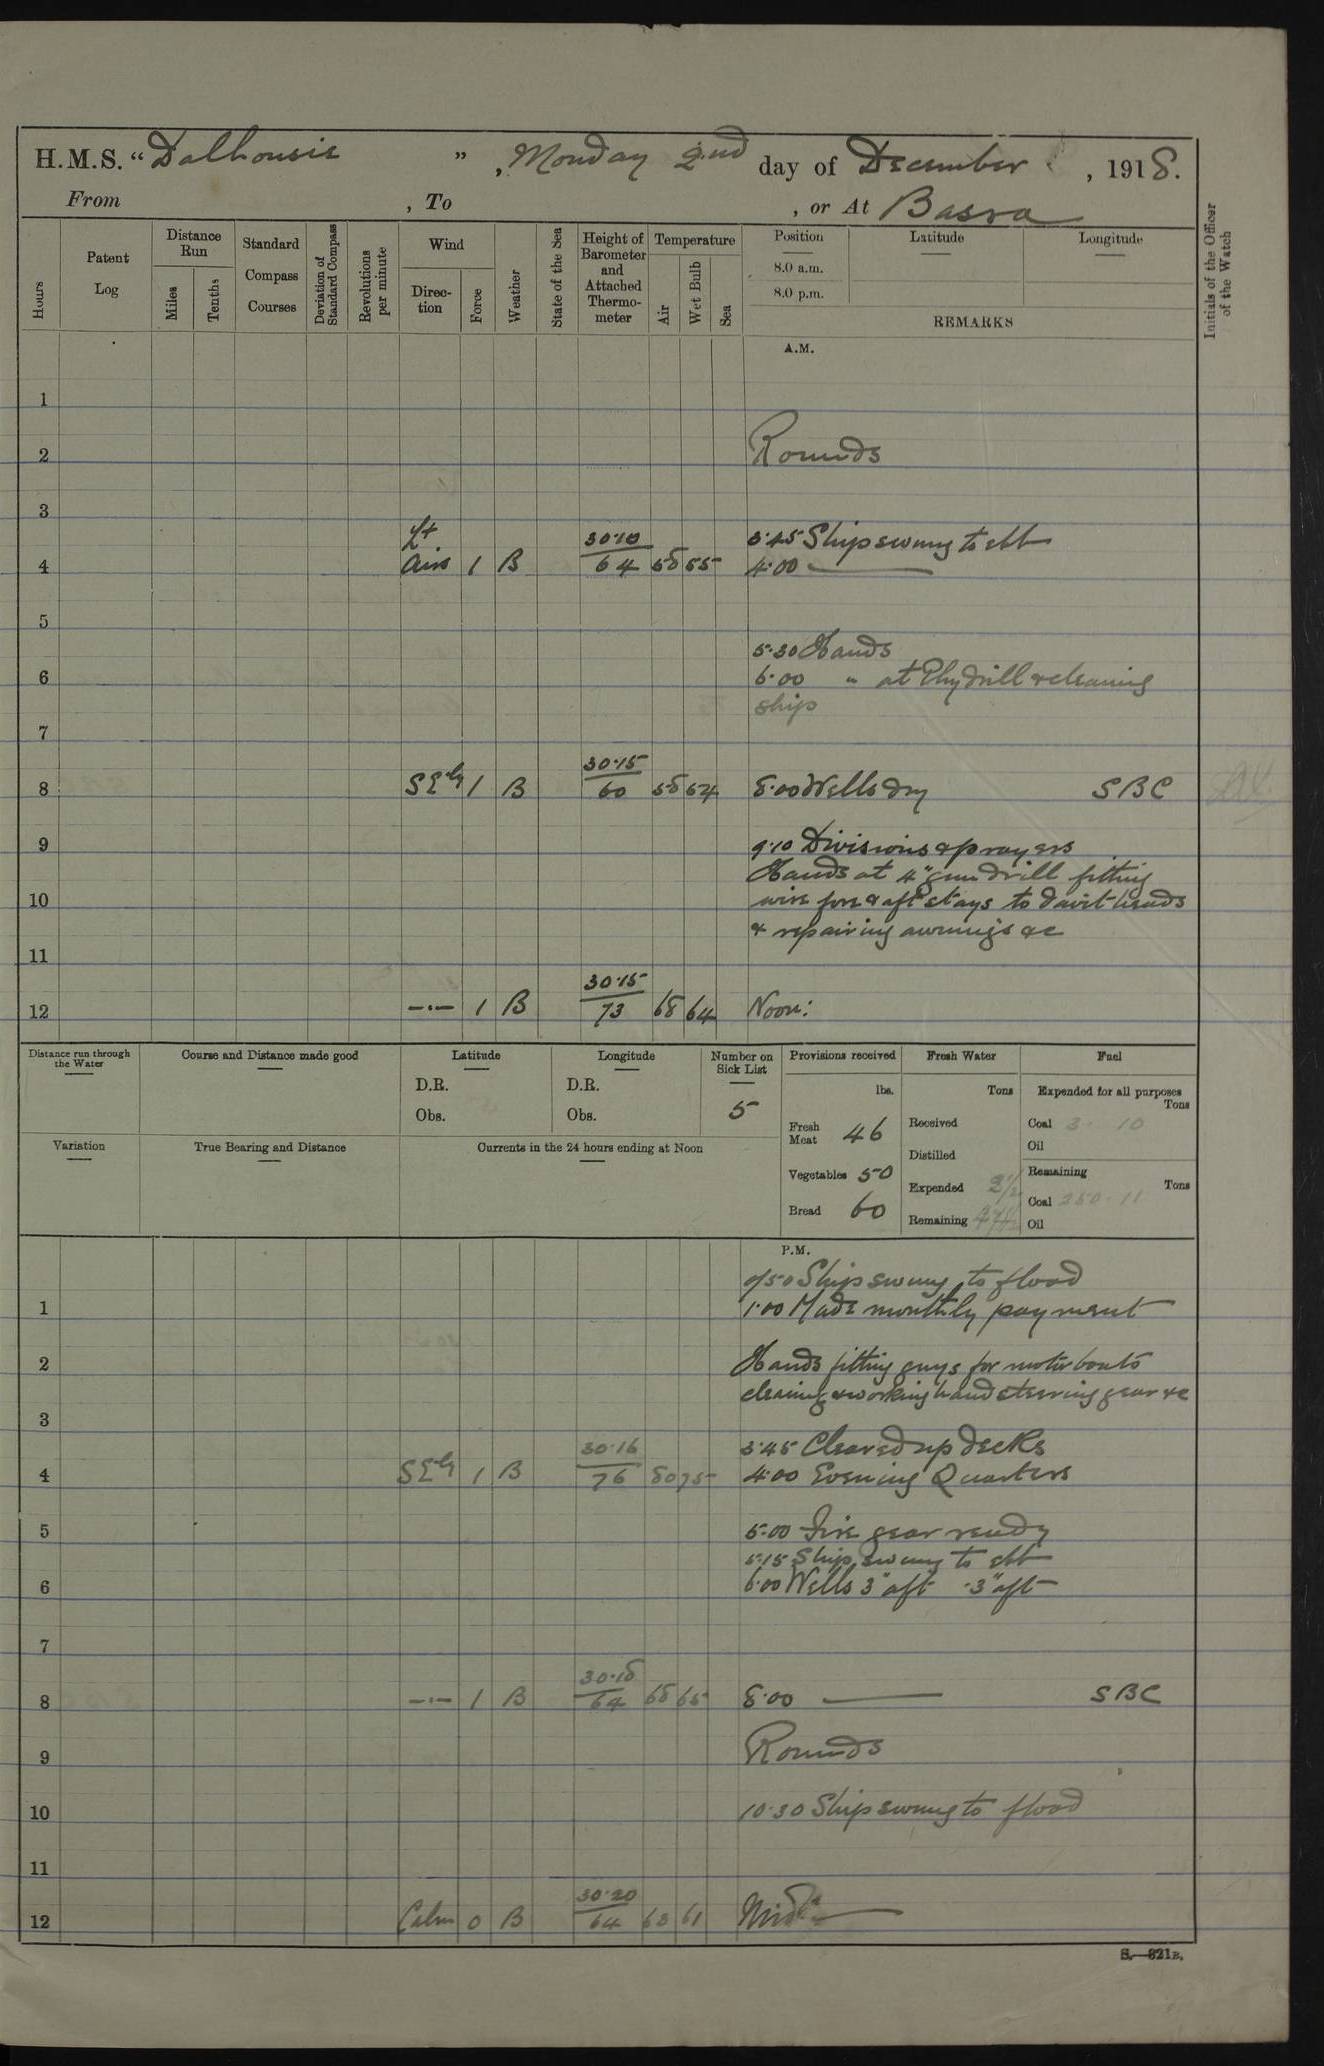 H.M.S. “Dalhousie”, Monday 2nd day of December, 1918.
From , To , or At Basra
Hours
Patent Log
Distance Run
Miles
Tenths
Standard Compass Courses
Deviation of Standard Compass
Revolutions per minute
Wind
Direction
Force
Weather
State of the Sea
Height of Barometer and Attached Thermometer
Temperature
Air
Wet Bulb
Sea
Position
8.0 a.m.
8.0 p.m.
Latitude
Longitude
REMARKS
Initials of the Officer of the Watch
A.M.
1
2 Rounds
3
Lt 30.10 3.45 Ship swung to ebb
4 airs 1 B 64 58 55 4.00
5
5.30 Hands
6 6.00 " at Phy drill & cleaning
ship
7
30.15
8 SE'ly 1 B 60 58 54 8.00 Wells dry SBC
9 9.10 Divisions & prayers
Hands at 4" gun drill fitting
10 wire fore & aft stays to davit heads
& repairing awnings &c
11
30.15
12 —"— 1 B 73 68 64 Noon:
Distance run through the Water
Course and Distance made good
Latitude
D.R.
Obs.
Longitude
D.R.
Obs.
Number on Sick List
5
Provisions received
lbs.
Fresh Meat 46
Vegetables 50
Bread 60
Fresh Water
Tons
Received
Distilled
Expended 2½
Remaining
Fuel
Expended for all purposes
Tons
Coal 3 . 10
Oil
Remaining
Tons
Coal 250 . 11
Oil
Variation
True Bearing and Distance
Currents in the 24 hours ending at Noon
P.M.
0/50 Ship swung to flood
1 1.00 Made monthly payment
2 Hands fitting guys for motor boats
cleaning & working hand steering gear &c
3
30.16 3.45 Cleared up decks
4 SE'ly 1 B 76 80 75 4.00 Evening Quarters
5 5.00 Fire gear ready
5.15 Ship swung to ebb
6 6.00 Wells 3" aft 3" aft
7
30.18
8 —"— 1 B 64 68 65 8.00 SBC
Rounds
9
10 10.30 Ship swung to flood
11
30.20
12 Calm 0 B 64 68 61 Midt
S.—321B.